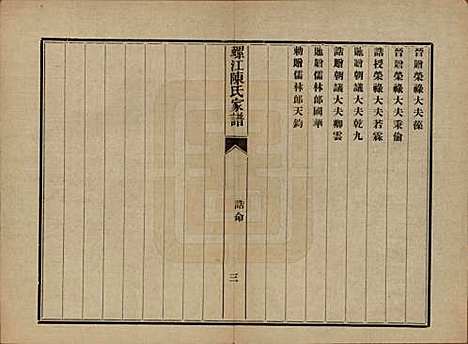 晉贈榮祿大夫㑺
晉贈榮祿大夫秉倫
誥授榮祿大夫若霖
馳贈朝議大夫乾九
誥贈朝議大夫卿雲
馳贈儒林郎國華
勅贈儒林郎天鈞
螺江陳氏家譜
誥命
三